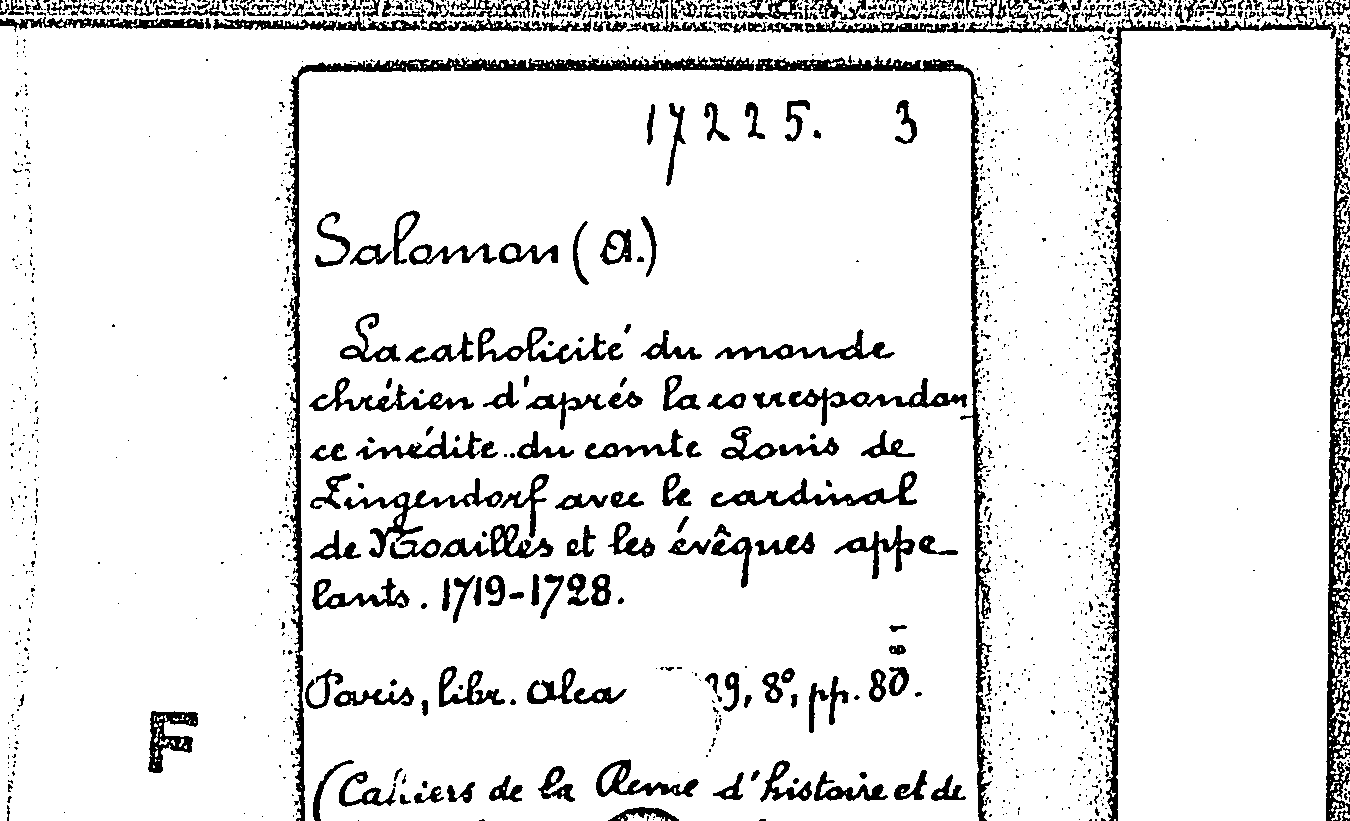 17225. 3
Salomon (A.)
La catholicité du monde
chrétien d'aprés la correspondan-
ce inédite du comte Louis de
Zingendorf avec le cardinal
de Noailles et les évêques appe-
lants. 1719-1728.
Paris, libr. Alca 29, 8°, pp. 80.
F
(Cahiers de la Revue d'histoire et de